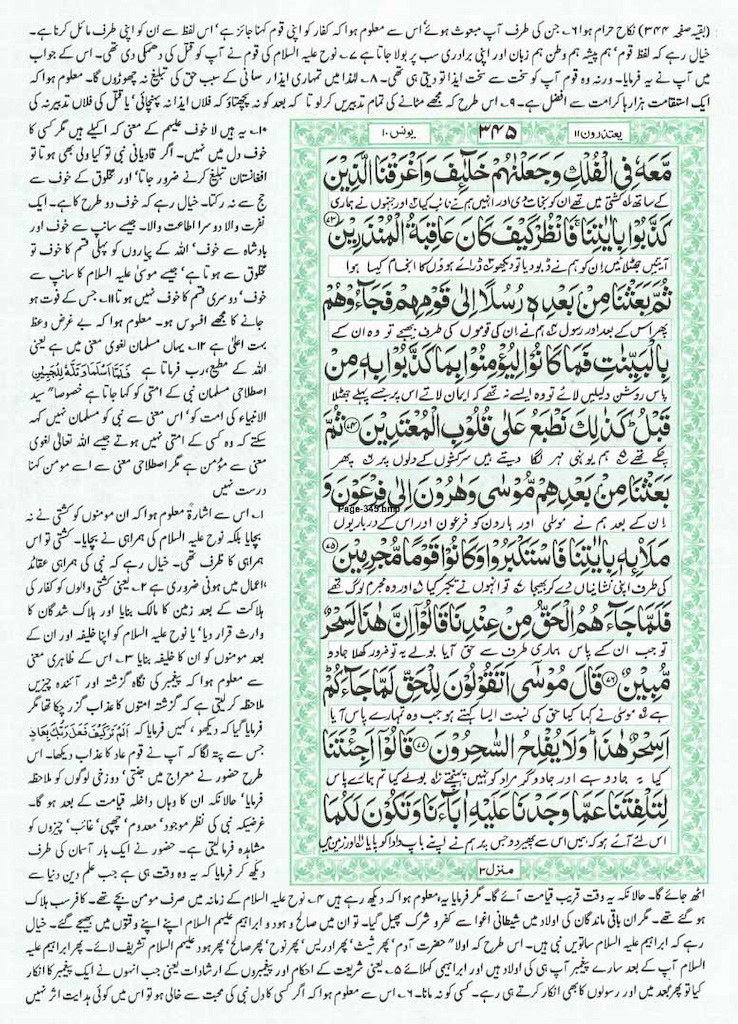 (بقیہ صفحہ ۳۴۴) نکاح حرام ہوا ۶۔ جن کی طرف آپ مبعوث ہوئے' اس سے معلوم ہوا کہ کفار کو اپنی قوم کہنا جائز ہے' اس لفظ سے ان کو اپنی طرف مائل کرنا ہے۔
خیال رہے کہ لفظ قوم' ہم پیشہ ہم وطن ہم زبان اور اپنی برادری سب پر بولا جاتا ہے ۷۔ نوح علیہ السلام کی قوم نے آپ کو قتل کی دھمکی دی تھی۔ اس کے جواب
میں آپ نے یہ فرمایا۔ ورنہ وہ قوم آپ کو سخت سے سخت ایذا تو دیتی ہی تھی۔ ۸۔ لہٰذا میں تمہاری ایذا رسانی کے سبب حق کی تبلیغ نہ چھوڑوں گا۔ معلوم ہوا کہ
ایک استقامت ہزارہا کرامت سے افضل ہے۔ ۹۔ اس طرح کہ مجھے مٹانے کی تمام تدبیریں کر لو تا کہ بعد کو نہ پچھتاؤ کہ فلاں ایذا نہ پہنچائی' یا قتل کی فلاں تدبیر نہ کی
یعتذرون ۱۱
۳۴۵
یونس ۱۰
مَّعَهٗ فِی الْفُلْكِ وَجَعَلْنٰهُمْ خَلٰٓىِٕفَ وَاَغْرَقْنَا الَّذِیْنَ
کے ساتھ کشتی میں تھے ان کو نجات دی اور انہیں ہم نے نائب کیا اور جنہوں نے ہماری
كَذَّبُوْا بِاٰیٰتِنَا ۚ فَانْظُرْ كَیْفَ كَانَ عَاقِبَةُ الْمُنْذَرِیْنَ ﴿۷۳﴾
آیتیں جھٹلائیں ان کو ہم نے ڈبو دیا تو دیکھو ڈرائے ہوؤں کا انجام کیسا ہوا
ثُمَّ بَعَثْنَا مِنْۢ بَعْدِهٖ رُسُلًا اِلٰی قَوْمِهِمْ فَجَآءُوْهُمْ
پھر اس کے بعد اور رسول ہم نے ان کی قوموں کی طرف بھیجے تو وہ ان کے
بِالْبَیِّنٰتِ فَمَا كَانُوْا لِیُؤْمِنُوْا بِمَا كَذَّبُوْا بِهٖ مِنْ
پاس روشن دلیلیں لائے تو وہ ایسے نہ تھے کہ ایمان لاتے اس پر جسے پہلے جھٹلا
قَبْلُ ؕ كَذٰلِكَ نَطْبَعُ عَلٰی قُلُوْبِ الْمُعْتَدِیْنَ ﴿۷۴﴾ ثُمَّ
چکے تھے ہم یونہی مہر لگا دیتے ہیں سرکشوں کے دلوں پر پھر
بَعَثْنَا مِنْۢ بَعْدِهِمْ مُّوْسٰی وَهٰرُوْنَ اِلٰی فِرْعَوْنَ وَ
Page-345.bmp
ان کے بعد ہم نے موسیٰ اور ہارون کو فرعون اور اس کے درباریوں
مَلَا۟ىِٕهٖ بِاٰیٰتِنَا فَاسْتَكْبَرُوْا وَكَانُوْا قَوْمًا مُّجْرِمِیْنَ ﴿۷۵﴾
کی طرف اپنی نشانیاں دے کر بھیجا تو انہوں نے تکبر کیا اور وہ مجرم لوگ تھے
فَلَمَّا جَآءَهُمُ الْحَقُّ مِنْ عِنْدِنَا قَالُوْۤا اِنَّ هٰذَا لَسِحْرٌ
تو جب ان کے پاس ہماری طرف سے حق آیا بولے یہ تو ضرور کھلا جادو
مُّبِیْنٌ ﴿۷۶﴾ قَالَ مُوْسٰۤی اَتَقُوْلُوْنَ لِلْحَقِّ لَمَّا جَآءَكُمْ ؕ
ہے موسیٰ نے کہا کیا حق کی نسبت ایسا کہتے ہو جب وہ تمہارے پاس آیا
اَسِحْرٌ هٰذَا ؕ وَلَا یُفْلِحُ السّٰحِرُوْنَ ﴿۷۷﴾ قَالُوْۤا اَجِئْتَنَا
کیا یہ جادو ہے اور جادوگر مراد کو نہیں پہنچتے بولے کیا تم ہمارے پاس
لِتَلْفِتَنَا عَمَّا وَجَدْنَا عَلَیْهِ اٰبَآءَنَا وَتَكُوْنَ لَكُمَا
اس لئے آئے ہو کہ ہمیں اس سے پھیر دو جس پر ہم نے اپنے باپ دادا کو پایا اور زمین میں
منزل ۳
۱۰۔ یہ ہیں لا خوف علیھم کے معنی کہ اکیلے ہیں مگر کسی کا
خوف دل میں نہیں۔ اگر قادیانی نبی تو کیا ولی بھی ہوتا تو
افغانستان تبلیغ کرنے ضرور جاتا' اور مخلوق کے خوف سے
حج سے نہ رکتا۔ خیال رہے کہ خوف دو طرح کا ہے۔ ایک
نفرت والا دوسرا اطاعت والا۔ جیسے سانپ سے خوف اور
بادشاہ سے خوف' اللہ کے پیاروں کو پہلی قسم کا خوف تو
مخلوق سے ہوتا ہے' جیسے موسیٰ علیہ السلام کا سانپ سے
خوف' دوسری قسم کا خوف نہیں ہوتا ۱۱۔ جس کے فوت ہو
جانے کا مجھے افسوس ہو۔ معلوم ہوا کہ بے غرض وعظ
بہت اعلیٰ ہے ۱۲۔ یہاں مسلمان لغوی معنی میں ہے یعنی
اللہ کے مطیع، رب فرماتا ہے فَلَمَّآ اَسْلَمَا وَتَلَّهٗ لِلْجَبِیْنِ
اصطلاحی مسلمان نبی کے امتی کو کہا جاتا ہے خصوصا" سید
الانبیاء کی امت کو' اس معنی سے نبی کو مسلمان نہیں کہہ
سکتے کہ وہ کسی کے امتی نہیں ہوتے جیسے اللہ تعالیٰ لغوی
معنی سے مؤمن ہے مگر اصطلاحی معنی سے اسے مومن کہنا
درست نہیں
۱۔ اس سے اشارۃ معلوم ہوا کہ ان مومنوں کو کشتی نے نہ
بچایا بلکہ نوح علیہ السلام کی ہمراہی نے بچایا۔ کشتی تو اس
ہمراہی کا ظرف تھی۔ خیال رہے کہ نبی کی ہمراہی عقائد
اعمال میں ہونی ضروری ہے ۲۔ یعنی کشتی والوں کو کفار کی
ہلاکت کے بعد زمین کا مالک بنایا اور ہلاک شدگان کا
وارث قرار دیا' یا نوح علیہ السلام کو اپنا خلیفہ اور ان کے
بعد مومنوں کو ان کا خلیفہ بنایا ۳۔ اس کے ظاہری معنی
سے معلوم ہوا کہ پیغمبر کی نگاہ گزشتہ اور آئندہ چیزیں
ملاحظہ کر لیتی ہے کہ گزشتہ امتوں کا عذاب گزر چکا تھا مگر
فرمایا گیا کہ دیکھو' کہیں فرمایا کہ اَلَمْ تَرَ كَیْفَ فَعَلَ رَبُّكَ بِعَادٍ
جس سے پتہ لگا کہ آپ نے قوم عاد کا عذاب دیکھا۔ اس
طرح حضور نے معراج میں جنتی' دوزخی لوگوں کو ملاحظہ
فرمایا' حالانکہ ان کا وہاں داخلہ قیامت کے بعد ہو گا۔
غرضیکہ نبی کی نظر موجود' معدوم' چھپی' غائب' چیزوں کو
مشاہدہ فرما لیتی ہے۔ حضور نے ایک بار آسمان کی طرف
دیکھ کر فرمایا کہ یہ وہ وقت ہی ہے جب علم دین دنیا سے
اٹھ جائے گا۔ حالانکہ یہ وقت قریب قیامت آئے گا۔ مگر فرمایا یہ، معلوم ہوا کہ دیکھ رہے ہیں ۴۔ نوح علیہ السلام کے زمانہ میں صرف مومن بچے تھے۔ کافر سب ہلاک
ہو گئے تھے۔ مگر ان باقی ماندگان کی اولاد میں شیطانی اغوا سے کفر و شرک پھیل گیا۔ تو ان میں صالح و ہود و ابراہیم علیہم السلام اپنے اپنے وقتوں میں بھیجے گئے۔ خیال
رہے کہ ابراہیم علیہ السلام ساتویں نبی ہیں۔ اس طرح کہ اولا" حضرت آدم' پھر شیث' پھر ادریس' پھر نوح' پھر صالح' پھر ہود علیہم السلام تشریف لائے۔ پھر ابراہیم علیہ
السلام آپ کے بعد سارے پیغمبر آپ ہی کی اولاد ہیں اور ابراہیمی کہلائے ۵۔ یعنی شریعت کے احکام اور پیغمبروں کے ارشادات یعنی جب انہوں نے ایک پیغمبر کا انکار
کیا تو پھر بعد میں اور رسولوں کا بھی انکار کرتے ہی رہے۔ کسی کو نہ مانا۔ ۶۔ اس سے معلوم ہوا کہ اگر کسی کا دل نبی کی محبت سے خالی ہو تو اس میں کوئی ہدایت اثر نہیں